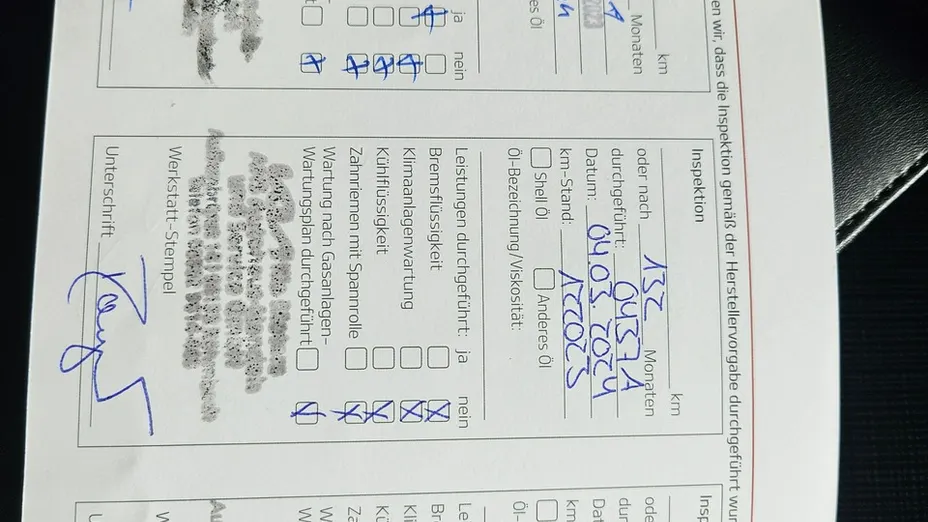 en wir, dass die Inspektion gemäß der Herstellervorgabe durchgeführt wur
km
Monaten
es Öl
ja nein
Inspektion
km
oder nach 132 Monaten
durchgeführt: 04371
Datum: 04.03.2024
km-Stand: 122023
Shell Öl Anderes Öl
Öl-Bezeichnung/Viskosität:
Leistungen durchgeführt: ja nein
Bremsflüssigkeit
Klimaanlagenwartung
Kühlflüssigkeit
Zahnriemen mit Spannrolle
Wartung nach Gasanlagen-
Wartungsplan durchgeführt
Werkstatt-Stempel
Unterschrift
Insp
ode
dur
Dat
km
Öl-
Le
Br
Kli
Kü
Za
W
W
W
U